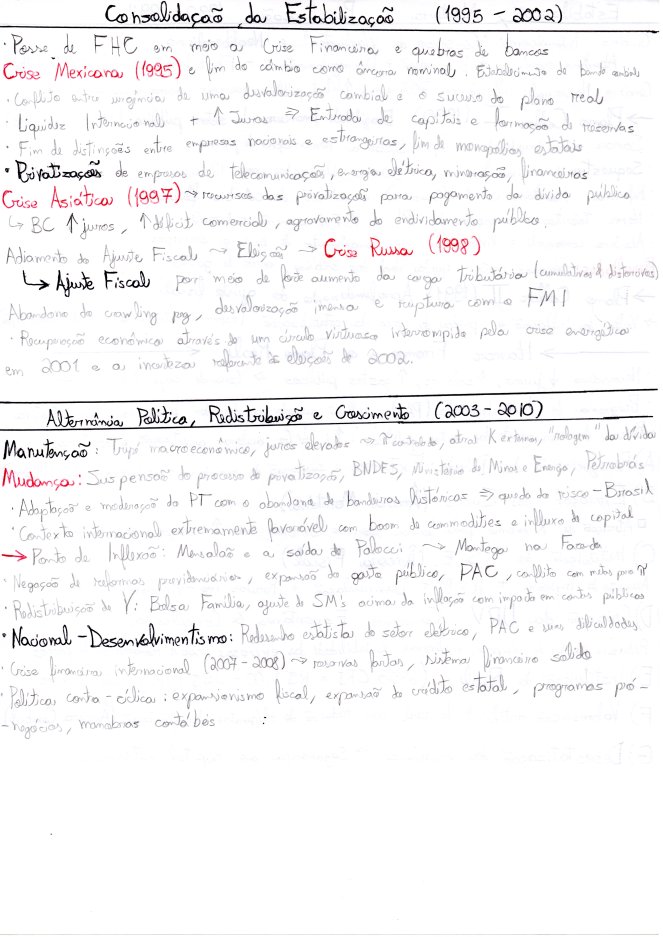 Consolidação da Estabilização (1995 - 2002)
· Posse de FHC em meio a Crise Financeira e quebras de bancos
Crise Mexicana (1995) e fim do câmbio como âncora nominal. Estabelecimento de banda cambial
· Conflito entre urgência de uma desvalorização cambial e o sucesso do plano real
· Liquidez Internacional + ↑ Juros ⇒ Entrada de capitais e formação de reservas
· Fim de distinções entre empresas nacionais e estrangeiras, fim de monopólios estatais
· Privatizações de empresas de telecomunicações, energia elétrica, mineração, financeiras
Crise Asiática (1997) → recursos das privatizações para pagamento da dívida pública
↳ BC ↑ juros, ↑ déficit comercial, agravamento do endividamento público.
Adiamento do Ajuste Fiscal → Eleição → Crise Russa (1998)
↳ Ajuste Fiscal por meio de forte aumento da carga tributária (cumulativas & distorcivas)
Abandono do crawling peg, desvalorização imensa e ruptura com o FMI
· Recuperação econômica através de um círculo virtuoso interrompido pela crise energética
em 2001 e a incerteza referente às eleições de 2002.
Alternância Política, Redistribuição e Crescimento (2003 - 2010)
Manutenção: Tripé macroeconômico, juros elevados → π controlada, atrai K externos, "rolagem" da dívida
Mudança: Suspensão do processo de privatização, BNDES, Ministério de Minas e Energia, Petrobrás
· Adaptação e moderação do PT com o abandono de bandeiras históricas ⇒ queda do risco-Brasil
· Contexto internacional extremamente favorável com boom de commodities e influxo de capital
→ Ponto de Inflexão: Mensalão e a saída do Palocci → Mantega na Fazenda
· Negação de reformas previdenciárias, expansão do gasto público, PAC, conflito com metas para π
· Redistribuição de Y: Bolsa Família, ajuste do SM's acima da inflação com impacto em contas públicas
· Nacional-Desenvolvimentismo: Redesenho estatista do setor elétrico, PAC e suas dificuldades
· Crise financeira internacional (2007-2008) → reservas fortes, sistema financeiro sólido
· Política contra-cíclica: expansionismo fiscal, expansão do crédito estatal, programas pró-
-negócios, manobras contábeis